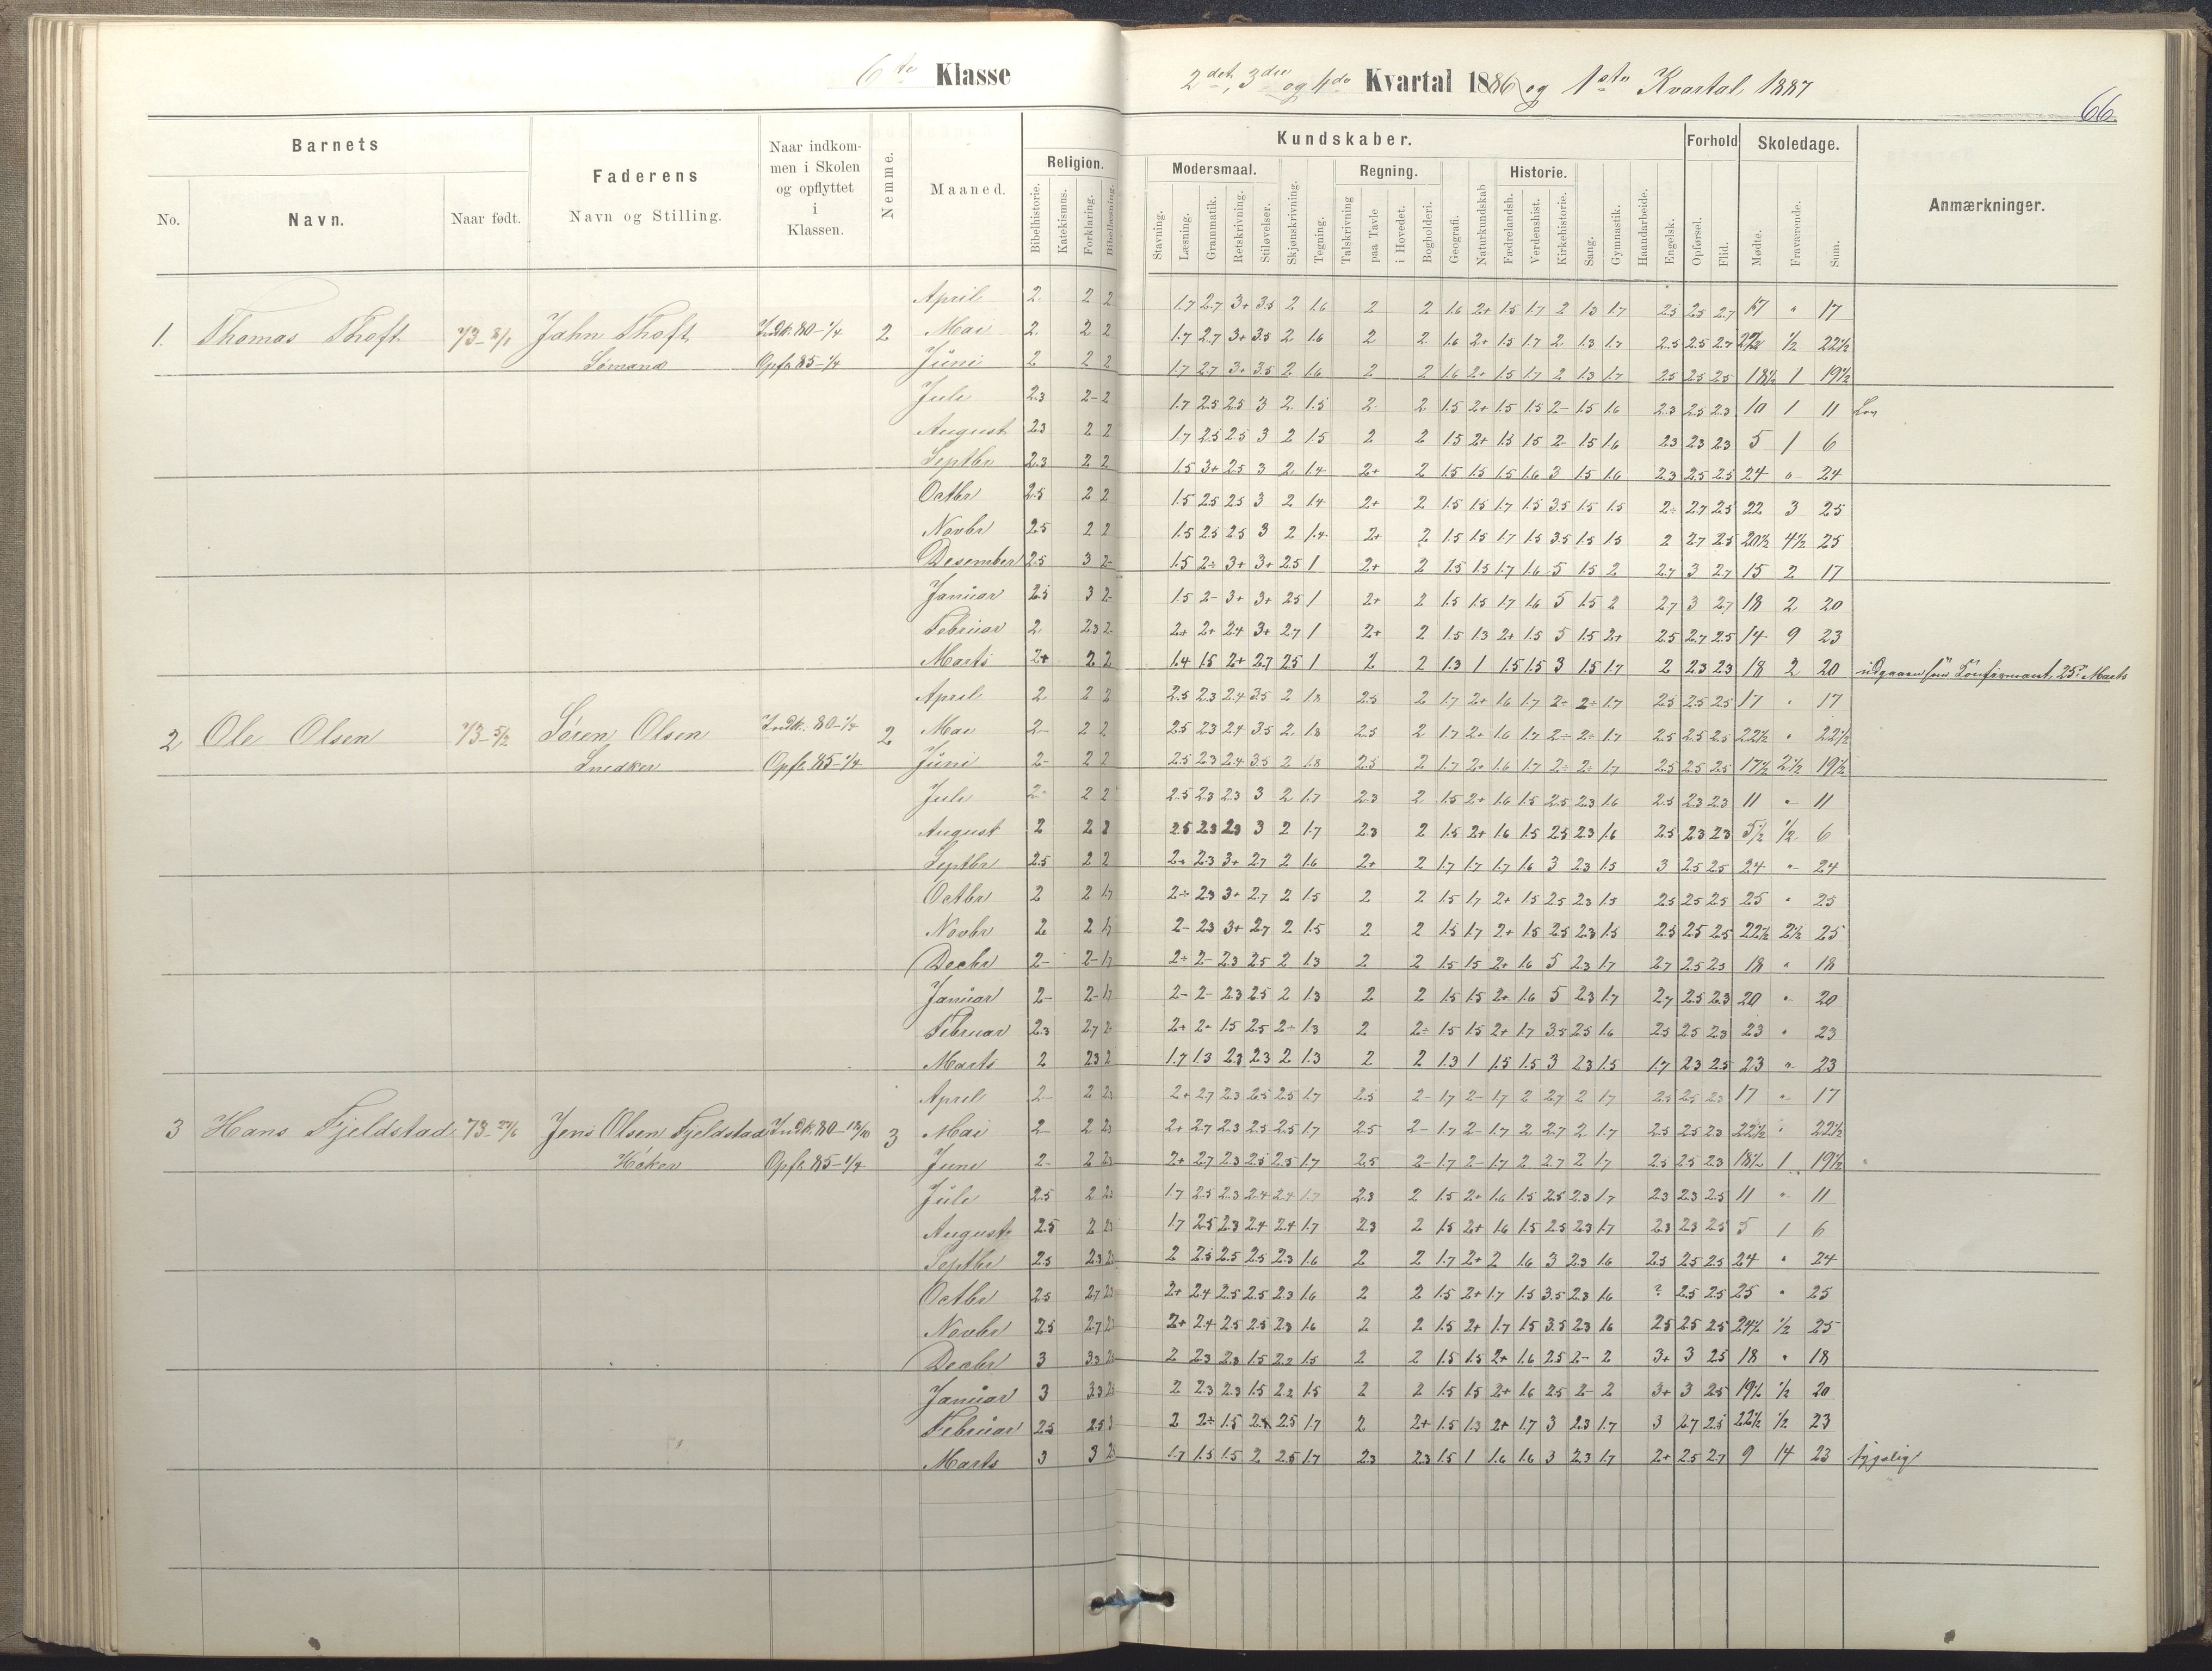 6te Klasse
2det, 3die og 4de Kvartal 1886 og 1ste Kvartal 1887
66
Barnets
No.
Navn.
Naar født.
Faderens
Navn og Stilling.
Naar indkom-
men i Skolen
og opflyttet
i
Klassen.
Nemme.
Maaned.
Kundskaber.
Religion.
Bibelhistorie.
Katekismus.
Forklaring.
Bibellæsning.
Modersmaal.
Stavning.
Læsning.
Grammatik.
Retskrivning.
Stiløvelser.
Skjønskrivning.
Tegning.
Regning.
Talskrivning
paa Tavle
i Hovedet.
Bogholderi.
Geografi.
Naturkundskab
Historie.
Fædrelandsh.
Verdenshist.
Kirkehistorie.
Sang.
Gymnastik.
Haandarbeide.
Engelsk.
Forhold
Opførsel.
Flid.
Skoledage.
Mødte.
Fraværende.
Sum.
Anmærkninger.
April 2 2 2 1.7 2.7 3+ 3.5 2 1.6 2 2 1.6 2+ 1.5 1.7 2 1.3 1.7 2.5 2.5 2.7 17 " 17
1. Thomas Thoft 73-8/1 John Thoft Indk. 80-1/4 2 Mai 2 2 2 1.7 2.7 3+ 3.5 2 1.6 2 2 1.6 2+ 1.5 1.7 2 1.3 1.7 2.5 2.5 2.7 22 1/2 22½
Sømand Opfl. 85-1/4 Juni 2 2 2 1.7 2.7 3+ 3.5 2 1.6 2 2 1.6 2+ 1.5 1.7 2 1.3 1.7 2.5 2.5 2.5 18½ 1 19½
Juli 2.3 2- 2 1.7 2.5 2.5 3 2 1.5 2 2 1.5 2+ 1.5 1.5 2- 1.5 1.6 2.3 2.5 2.3 10 1 11
August 2.3 2 2 1.7 2.5 2.5 3 2 1.5 2 2 1.5 2+ 1.5 1.5 2- 1.5 1.6 2.3 2.3 2.3 5 1 6
Septbr 2.3 2 2 1.5 3+ 2.5 3 2 1.4 2+ 2 1.5 1.5 1.5 1.6 3 1.5 1.6 2.3 2.5 2.5 24 " 24
Octbr 2.5 2 2 1.5 2.5 2.5 3 2 1.4 2+ 2 1.5 1.5 1.7 1.5 3.5 1.5 1.5 2- 2.7 2.5 22 3 25
Novbr 2.5 2 2 1.5 2.5 2.5 3 2 1.4 2+ 2 1.5 1.5 1.7 1.5 3.5 1.5 1.5 2 2.7 2.5 20½ 4½ 25
Desember 2.5 3 2- 1.5 2÷ 3+ 3+ 2.5 1 2+ 2 1.5 1.5 1.7 1.6 5 1.5 2 2.7 3 2.7 15 2 17
Januar 2.5 3 2- 1.5 2- 3+ 3+ 2.5 1 2+ 2 1.5 1.5 1.7 1.6 5 1.5 2 2.7 3 2.7 18 2 20
Februar 2 2.3 2- 2+ 2+ 2.4 3+ 2.7 1 2+ 2 1.5 1.3 2+ 1.5 5 1.5 2+ 2.5 2.7 2.5 14 9 23
Marts 2+ 2 2 1.4 1.5 2+ 2.7 2.5 1 2 2 1.3 1 1.5 1.5 3 1.5 1.7 2 2.3 2.3 18 2 20 udgaaen som Konfirmant, 25. Marts
April 2 2 2 2.5 2.3 2.4 3.5 2 1.8 2.5 2 1.7 2+ 1.6 1.7 2÷ 2÷ 1.7 2.5 2.5 2.5 17 " 17
2 Ole Olsen 73-5/2 Søren Olsen Indk. 80-1/4 2 Mai 2- 2 2 2.5 2.3 2.4 3.5 2 1.8 2.5 2 1.7 2+ 1.6 1.7 2÷ 2÷ 1.7 2.5 2.5 2.5 22½ " 22½
Snedker Opfl. 85-1/4 Juni 2- 2 2 2.5 2.3 2.4 3.5 2 1.8 2.5 2 1.7 2+ 1.6 1.7 2÷ 2÷ 1.7 2.5 2.5 2.5 17½ 2½ 19½
Juli 2- 2 2 2.5 2.3 2.3 3 2 1.7 2.3 2 1.5 2+ 1.6 1.5 2.5 2.3 1.6 2.5 2.3 2.3 11 " 11
August 2 2 2 2.5 2.3 2.3 3 2 1.7 2.3 2 1.5 2+ 1.6 1.5 2.5 2.3 1.6 2.5 2.3 2.3 5½ ½ 6
Septbr 2.5 2 2 2+ 2.3 3+ 2.7 2 1.6 2+ 2 1.7 1.7 1.7 1.6 3 2.3 1.5 3 2.5 2.5 24 " 24
Octbr 2 2 1.7 2÷ 2.3 3+ 2.7 2 1.5 2 2 1.5 1.7 2+ 1.5 2.5 2.3 1.5 2.5 2.5 2.5 25 " 25
Novbr 2 2 1.7 2- 2.3 3+ 2.7 2 1.5 2 2 1.5 1.7 2+ 1.5 2.5 2.3 1.5 2.5 2.5 2.5 22½ 2½ 25
Decbr 2- 2- 1.7 2÷ 2- 2.3 2.5 2 1.3 2 2 1.5 1.5 2+ 1.6 5 2.3 1.7 2.7 2.5 2.3 18 " 18
Januar 2- 2- 1.7 2- 2- 2.3 2.5 2 1.3 2 2 1.5 1.5 2+ 1.6 5 2.3 1.7 2.7 2.5 2.3 20 " 20
Februar 2.3 2.7 2- 2+ 2+ 1.5 2.5 2÷ 1.3 2 2÷ 1.5 1.5 2+ 1.7 3.5 2.5 1.6 2.5 2.5 2.3 23 " 23
Marts 2 2.3 2 1.7 1.3 2.3 2.3 2 1.3 2 2 1.3 1 1.5 1.5 3 2.3 1.5 1.7 2.3 2.5 23 " 23
April 2- 2 2.3 2+ 2.7 2.3 2.5 2.5 1.7 2.5 2- 1.7 2- 1.7 2 2.7 2 1.7 2.5 2.5 2.3 17 " 17
3 Hans Fjeldstad 73-24/6 Jens Olsen Fjeldstad Indk. 80-12/10 3 Mai 2- 2 2.3 2+ 2.7 2.3 2.5 2.5 1.7 2.5 2- 1.7 2- 1.7 2 2.7 2 1.7 2.5 2.5 2.3 22½ " 22½
Høker Opfl. 85-1/4 Juni 2- 2 2.3 2+ 2.7 2.3 2.5 2.5 1.7 2.5 2- 1.7 2- 1.7 2 2.7 2 1.7 2.5 2.5 2.3 18½ 1 19½
Juli 2.5 2 2.3 1.7 2.5 2.3 2.4 2.4 1.7 2.3 2 1.5 2+ 1.6 1.5 2.5 2.3 1.7 2.3 2.3 2.5 11 " 11
August 2.5 2 2.3 1.7 2.5 2.3 2.4 2.4 1.7 2.3 2 1.5 2+ 1.6 1.5 2.5 2.3 1.7 2.3 2.3 2.5 5 1 6
Septbr 2.5 2.3 2.3 2 2.5 2.5 2.5 2.3 1.6 2 2 1.7 2+ 2 1.6 3 2.3 1.6 2.5 2.5 2.5 24 " 24
Octbr 2.5 2.7 2.3 2+ 2.4 2.5 2.5 2.3 1.6 2 2 1.5 2+ 1.7 1.5 3.5 2.3 1.6 ? 2.5 2.5 25 " 25
Novbr 2.5 2.7 2.3 2+ 2.4 2.5 2.5 2.3 1.6 2 2 1.5 2+ 1.7 1.5 3.5 2.3 1.6 2.5 2.5 2.5 24½ ½ 25
Decbr 3 3.3 2 2.3 2.3 1.5 2.2 1.5 2 2 1.5 1.5 2+ 1.6 2.5 2- 2 3+ 3 2.5 18 " 18
Januar 3 3.3 2 2.3 2.3 1.5 2.2 1.5 2 2 1.5 1.5 2+ 1.6 2.5 2- 2 3+ 3 2.5 19½ ½ 20
Februar 2.5 2.5 2 2÷ 1.5 2.5 1.7 2 2+ 1.5 1.3 2+ 1.7 3 2.3 1.7 3 2.7 2.5 22½ ½ 23
Marts 3 3 1.7 1.5 1.5 2 2.5 1.7 2.3 2.3 1.5 1 1.6 1.6 3 2.3 1.7 2+ 2.5 2.7 9 14 23 sygelig